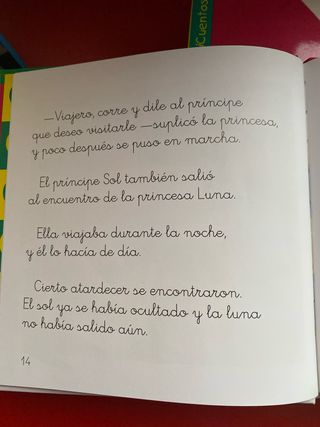 Cuentos
—Viajero, corre y dile al príncipe
que deseo visitarle —suplicó la princesa,
y poco después se puso en marcha.
El príncipe Sol también salió
al encuentro de la princesa Luna.
Ella viajaba durante la noche,
y él lo hacía de día.
Cierto atardecer se encontraron.
El sol ya se había ocultado y la luna
no había salido aún.
14